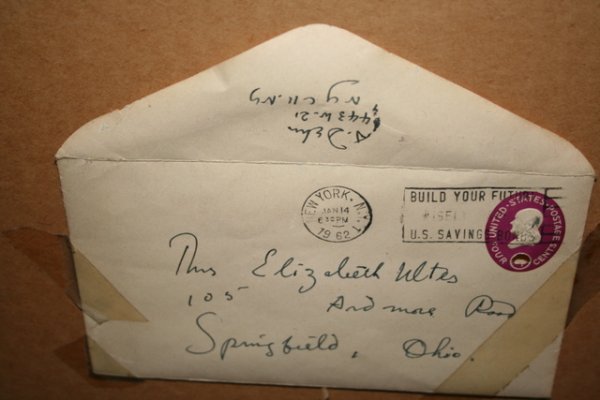 443 W. 21
N Y C 11. N Y
NEW YORK, N.Y. 1
JAN 14
6 30 PM
1962
BUILD YOUR FUTURE
WISELY
U.S. SAVING
UNITED·STATES·POSTAGE
FOUR CENTS
Elizabeth
105 Ardmore Road
Springfield, Ohio.